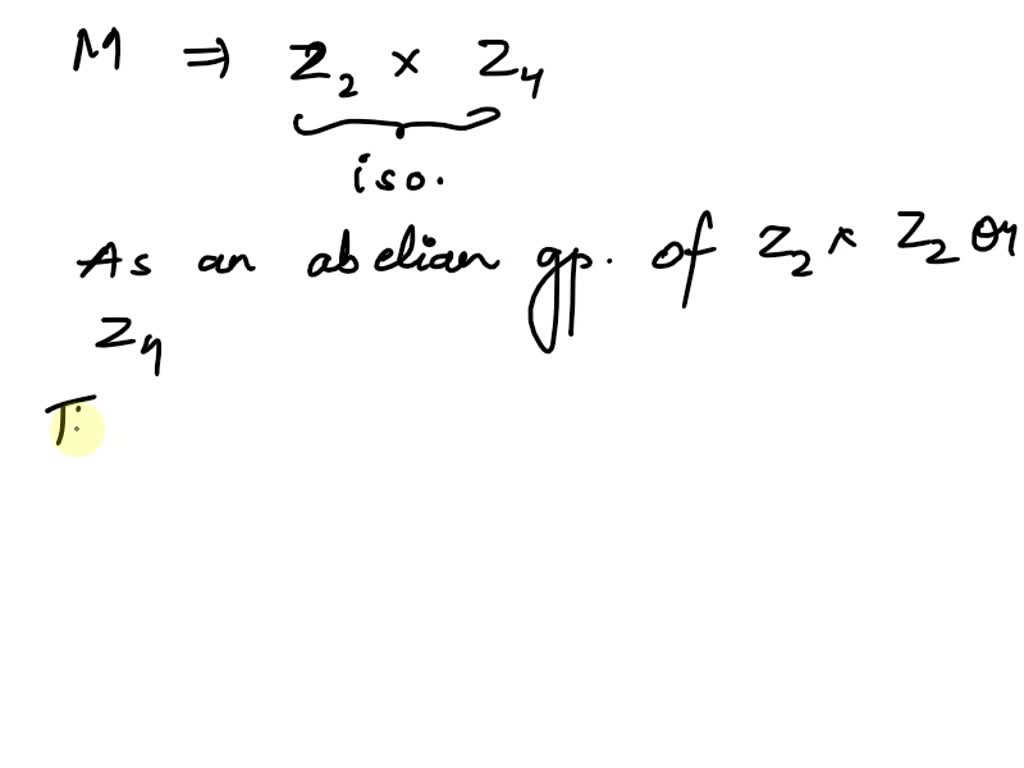 M ⇒ Z₂ × Z₄
iso.
As an abelian gp. of Z₂ × Z₂ or
Z₄
T: